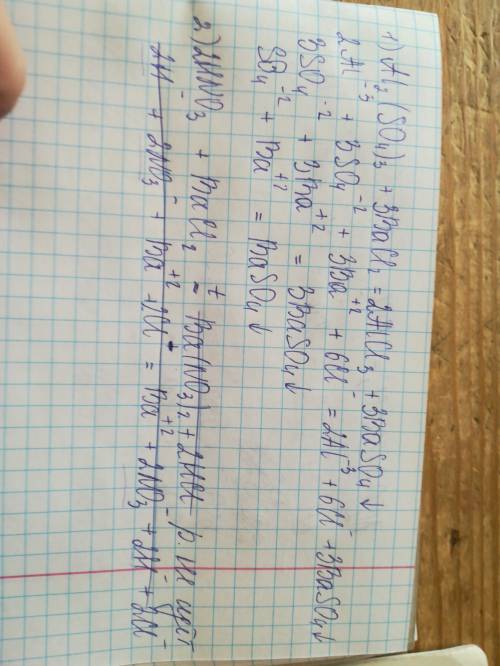 1) Al₂(SO₄)₃ + 3BaCl₂ = 2AlCl₃ + 3BaSO₄↓
2Al⁻³ + 3SO₄⁻² + 3Ba⁺² + 6Cl⁻ = 2Al⁻³ + 6Cl⁻ + 3BaSO₄↓
3SO₄⁻² + 3Ba⁺² = 3BaSO₄↓
SO₄⁻² + Ba⁺² = BaSO₄↓
2) 2HNO₃ + BaCl₂ ≠ Ba(NO₃)₂ + 2HCl р не идёт
2H + 2NO₃⁻ + Ba⁺² + 2Cl⁻ = Ba⁺² + 2NO₃⁻ + 2H + 2Cl⁻